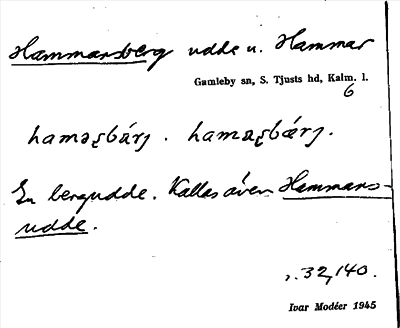 Hammarsberg udde u. Hammar
Gamleby sn, S. Tjusts hd, Kalm. l.
6
En bergudde. Kallas även Hammars-
udde.
32,140.
Ivar Modéer 1945